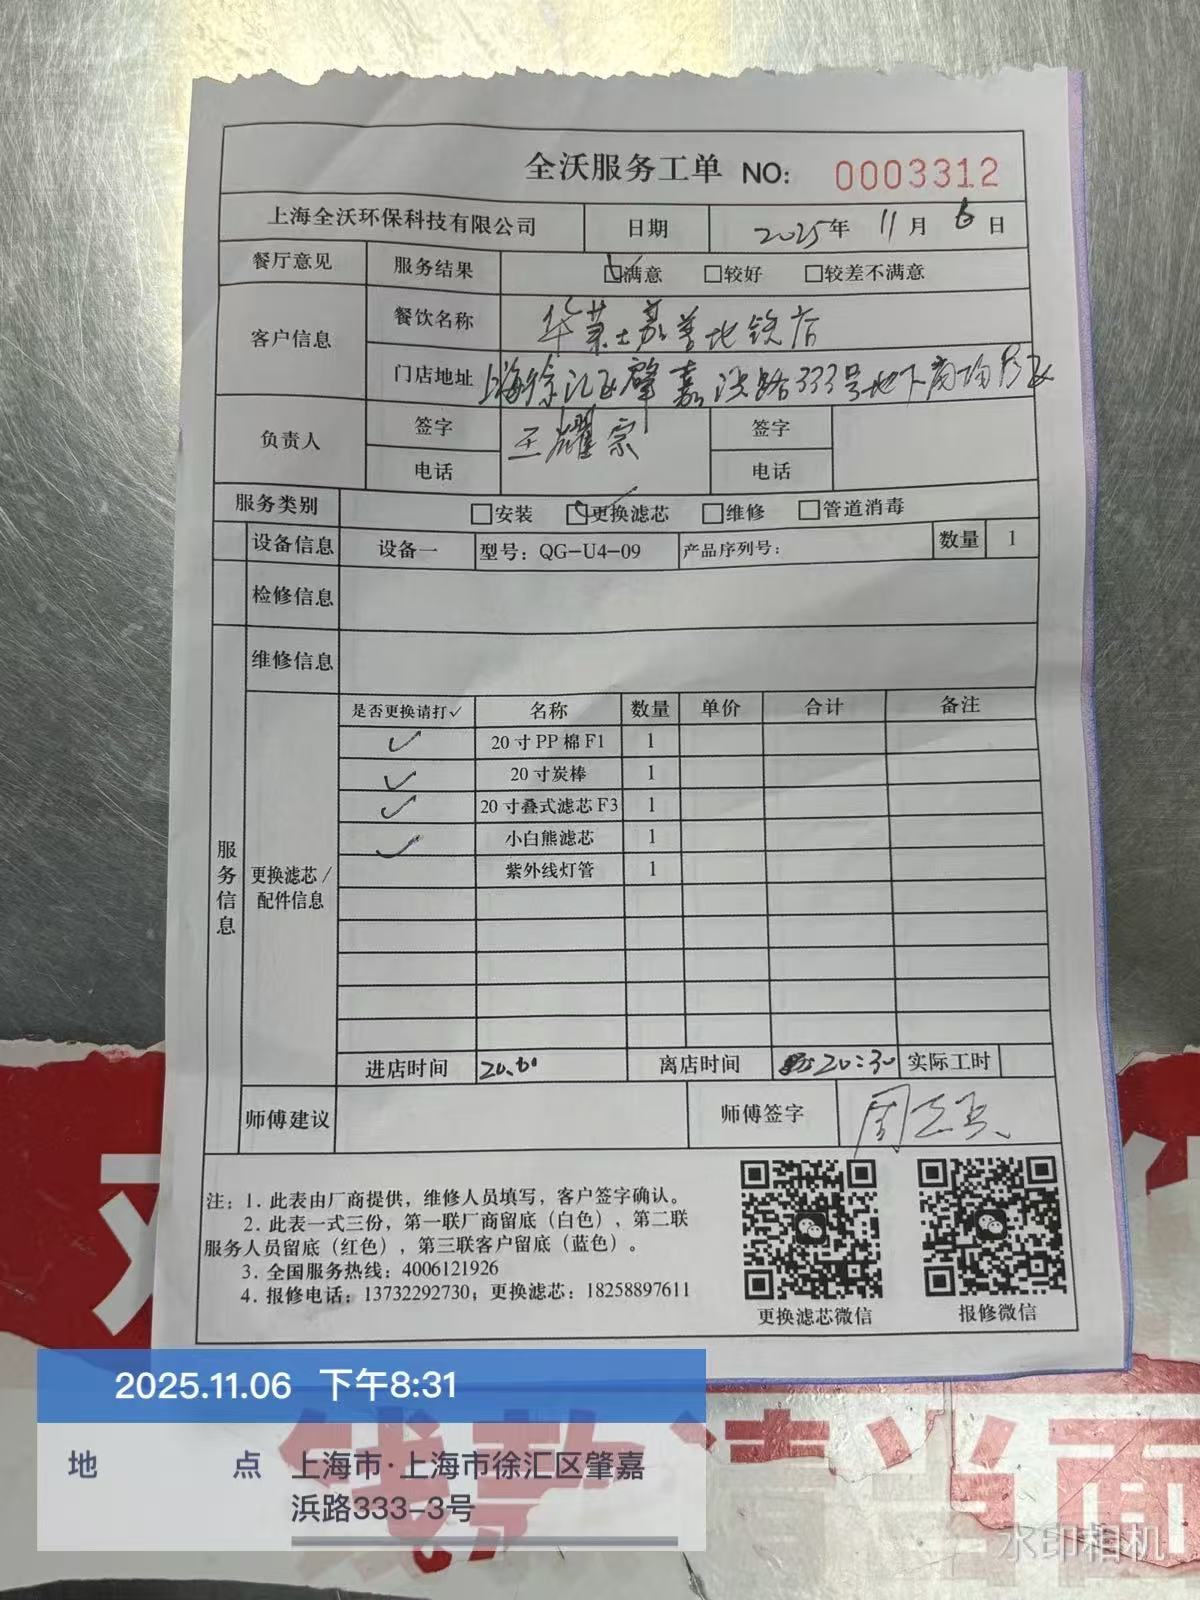 全沃服务工单 NO: 0003312
上海全沃环保科技有限公司 日期 2025年 11月 6日
餐厅意见 服务结果 ☑满意 □较好 □较差不满意
客户信息 餐饮名称 华莱士嘉善地铁店
门店地址 上海徐汇区肇嘉浜路333号地下商场
负责人 签字 王耀宗 签字
电话 电话
服务类别 □安装 ☑更换滤芯 □维修 □管道消毒
设备信息 设备一 型号：QG-U4-09 产品序列号： 数量 1
检修信息
维修信息
服务信息
更换滤芯/配件信息
是否更换请打✓ 名称 数量 单价 合计 备注
✓ 20寸PP棉F1 1
✓ 20寸炭棒 1
✓ 20寸叠式滤芯F3 1
✓ 小白熊滤芯 1
紫外线灯管 1
进店时间 离店时间 20:30 实际工时
师傅建议 师傅签字
注：1. 此表由厂商提供，维修人员填写，客户签字确认。
2. 此表一式三份，第一联厂商留底（白色），第二联
服务人员留底（红色），第三联客户留底（蓝色）。
3. 全国服务热线：4006121926
4. 报修电话：13732292730；更换滤芯：18258897611
更换滤芯微信 报修微信
2025.11.06 下午8:31
地点 上海市·上海市徐汇区肇嘉
浜路333-3号
钱款请当面
水印相机